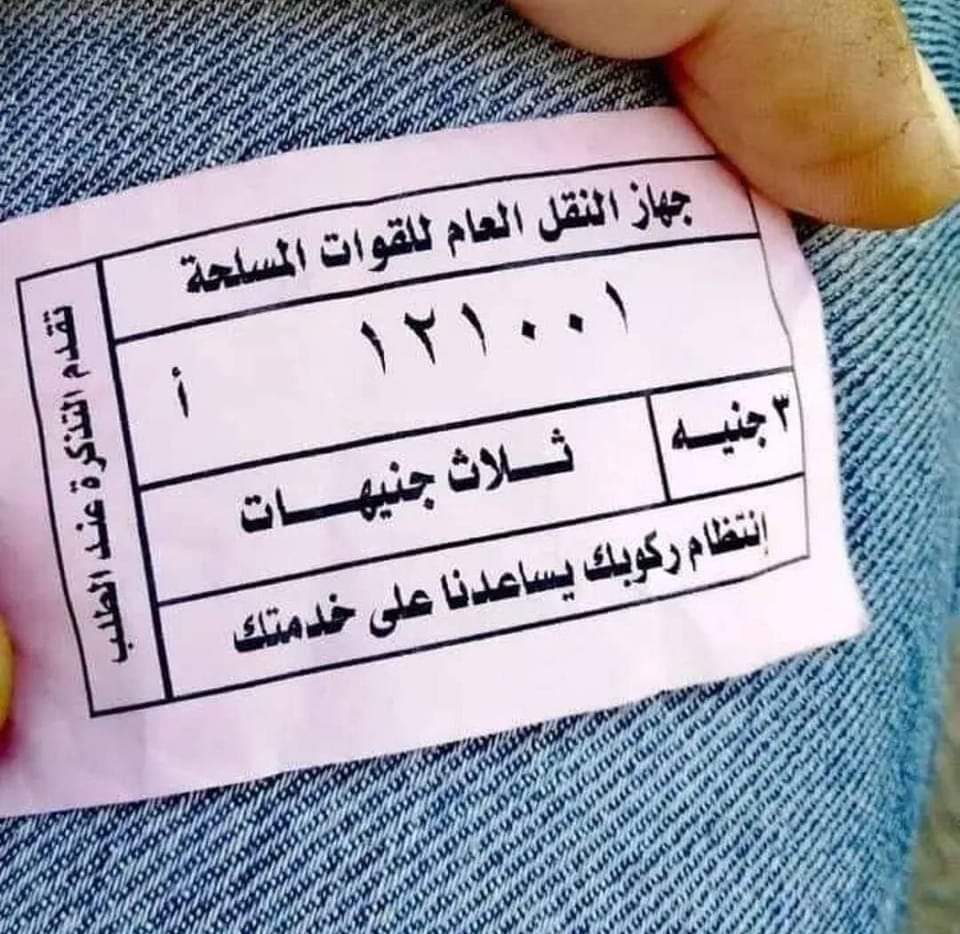 جهاز النقل العام للقوات المسلحة
١٢١٠٠١
أ
٣ جنيـه
ثـلاث جنيهـات
إنتظام ركوبك يساعدنا على خدمتك
تقدم التذكرة عند الطلب